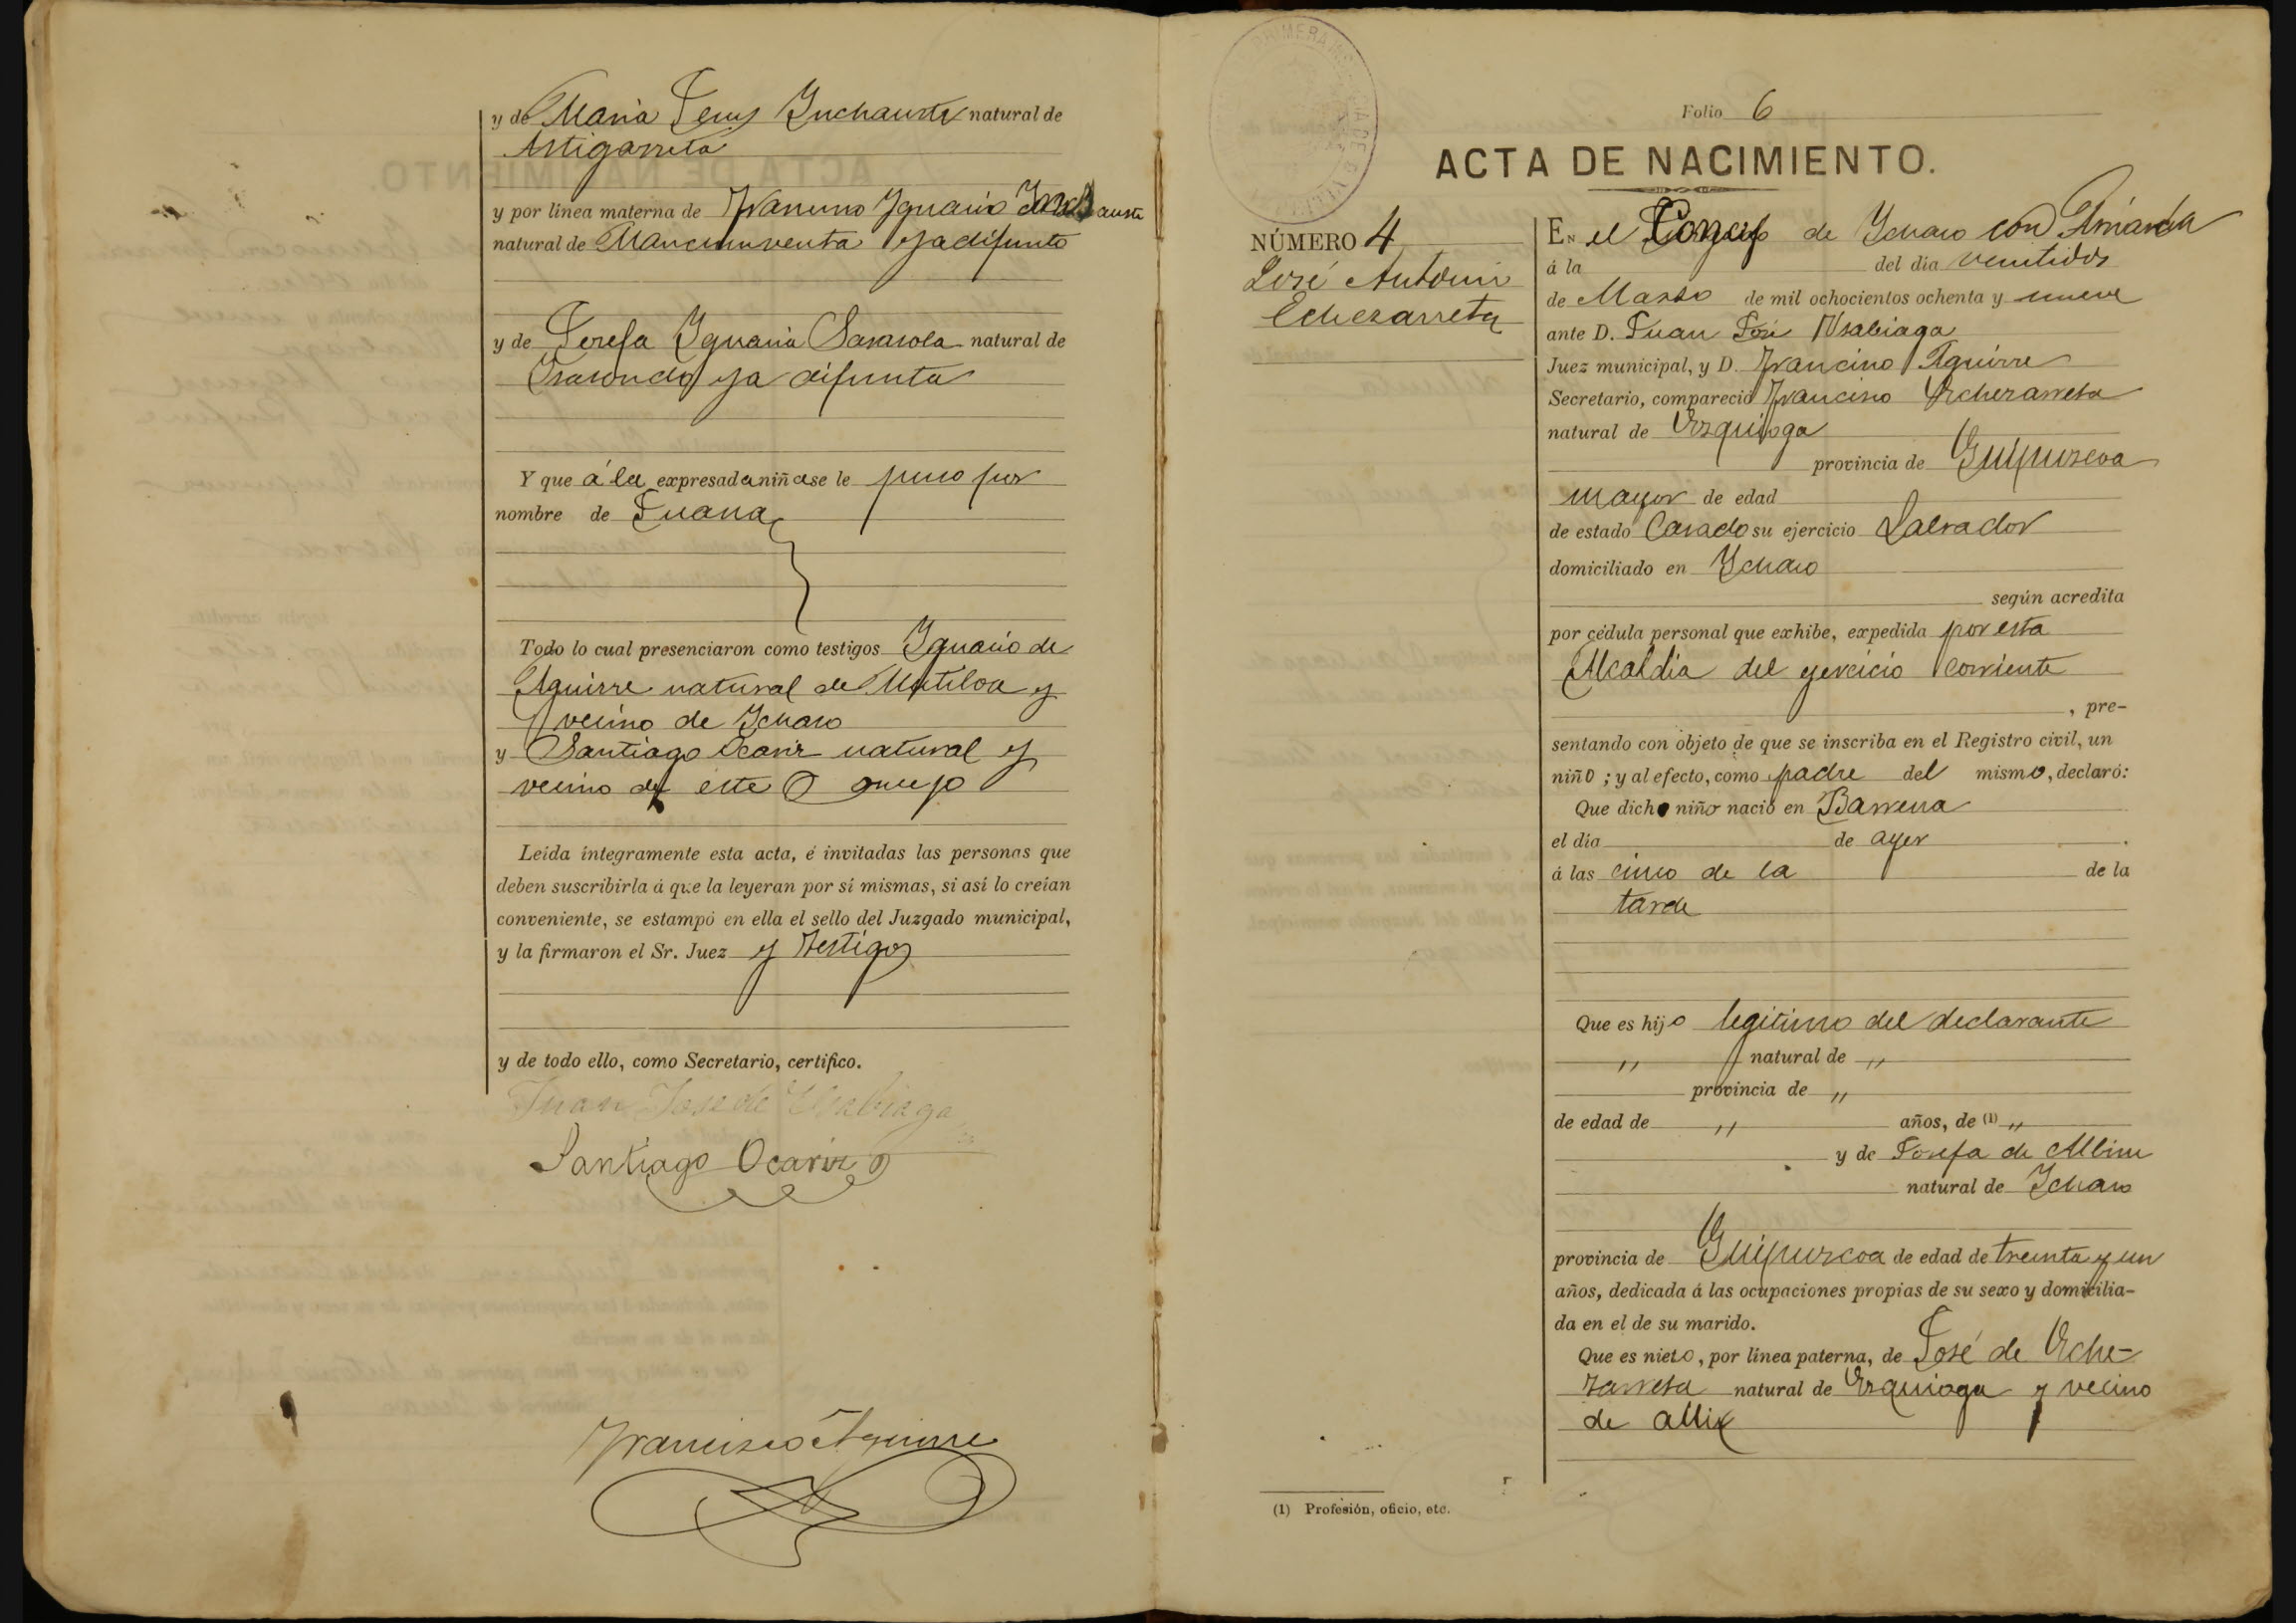 y de Maria Jesus Inchauste natural de
Astigarreta
y por línea materna de Francisco Ygnacio Inchauste
natural de ya difunto
y de Josefa Ygnacia Sarasola natural de
Ysasondo ya difunta
Y que á la expresada niña se le puso por
nombre de Juana
Todo lo cual presenciaron como testigos Ygnacio de
Aguirre natural de Mutiloa y
vecino de Ichaso
y Santiago Ocariz natural y
vecino de este Concejo
Leída íntegramente esta acta, é invitadas las personas que
deben suscribirla á que la leyeran por sí mismas, si así lo creían
conveniente, se estampó en ella el sello del Juzgado municipal,
y la firmaron el Sr. Juez y testigos
y de todo ello, como Secretario, certifico.
Juan José de Usabiaga
Santiago Ocariz
Francisco Aguirre
Folio 6
ACTA DE NACIMIENTO.
NÚMERO 4
José Antonio
Echezarreta
En el Concejo de Ychaso con Arriarán
á la del día veintidos
de Marzo de mil ochocientos ochenta y nueve
ante D. Juan José Usabiaga
Juez municipal, y D. Francisco Aguirre
Secretario, compareció Francisco Echezarreta
natural de Ezquioga
provincia de Guipuzcoa
mayor de edad
de estado Casado su ejercicio Labrador
domiciliado en Ychaso
según acredita
por cédula personal que exhibe, expedida por esta
Alcaldia del ejercicio corriente
, pre-
sentando con objeto de que se inscriba en el Registro civil, un
niño ; y al efecto, como padre del mismo, declaró:
Que dicho niño nació en Barrena
el día de ayer .
á las cinco de la de la
tarde
Que es hijo legitimo del declarante
,, natural de ,,
provincia de ,,
de edad de ,, años, de (1) ,,
y de Josefa de Albisu
natural de Ychaso
provincia de Guipuzcoa de edad de treinta y un
años, dedicada á las ocupaciones propias de su sexo y domicilia-
da en el de su marido.
Que es nieto, por línea paterna, de José de Eche-
zarreta natural de Ezquioga y vecino
de alli
(1) Profesión, oficio, etc.